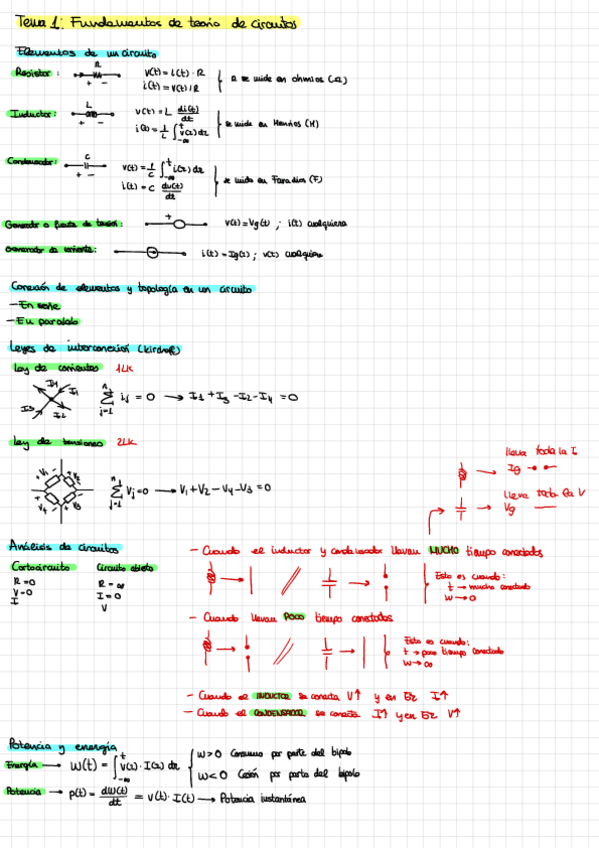 Tema 1: Fundamentos de teoría de circuitos
Elementos de un circuito
Resistor: R + - v(t) = i(t) · R
i(t) = v(t) / R
R se mide en ohmios (Ω)
Inductor: L + - v(t) = L di(t)/dt
i(t) = 1/L ∫_{-∞}^{t} v(z) dz
se mide en Henrios (H)
Condensador: C + - v(t) = 1/C ∫_{-∞}^{t} i(z) dz
i(t) = C dv(t)/dt
se mide en Faradios (F)
Generador o fuente de tensión: + v(t) = Vg(t) ; i(t) cualquiera
Generador de corriente: i(t) = Ig(t) ; v(t) cualquiera
Conexión de elementos y topología en un circuito
- En serie
- En paralelo
Leyes de interconexión (Kirchoff)
Ley de corrientes 1LK
I4 I1 I3 I2
∑_{j=1}^{n} ij = 0 → I1 + I3 - I2 - I4 = 0
Ley de tensiones 2LK
+ V1 - + V2 - + V4 - + V3 -
∑_{j=1}^{n} Vj = 0 → V1 + V2 - V4 - V3 = 0
lleva toda la I
Ig
lleva toda la V
Vg
Análisis de circuitos
Cortocircuito Circuito abierto
R = 0 R = ∞
V = 0 I = 0
I V
- Cuando el inductor y condensador llevan MUCHO tiempo conectados
Esto es cuando:
t → mucho conectado
w → 0
- Cuando llevan POCO tiempo conectados
Esto es cuando:
t → poco tiempo conectado
w → ∞
- Cuando el INDUCTOR se conecta V↑ y en I↑
- Cuando el CONDENSADOR se conecta I↑ y en V↑
Potencia y energía
Energía → W(t) = ∫_{-∞}^{t} V(z) · I(z) dz
W > 0 Consumo por parte del bipolo
W < 0 Cesión por parte del bipolo
Potencia → p(t) = dW(t)/dt = v(t) · I(t) → Potencia instantánea